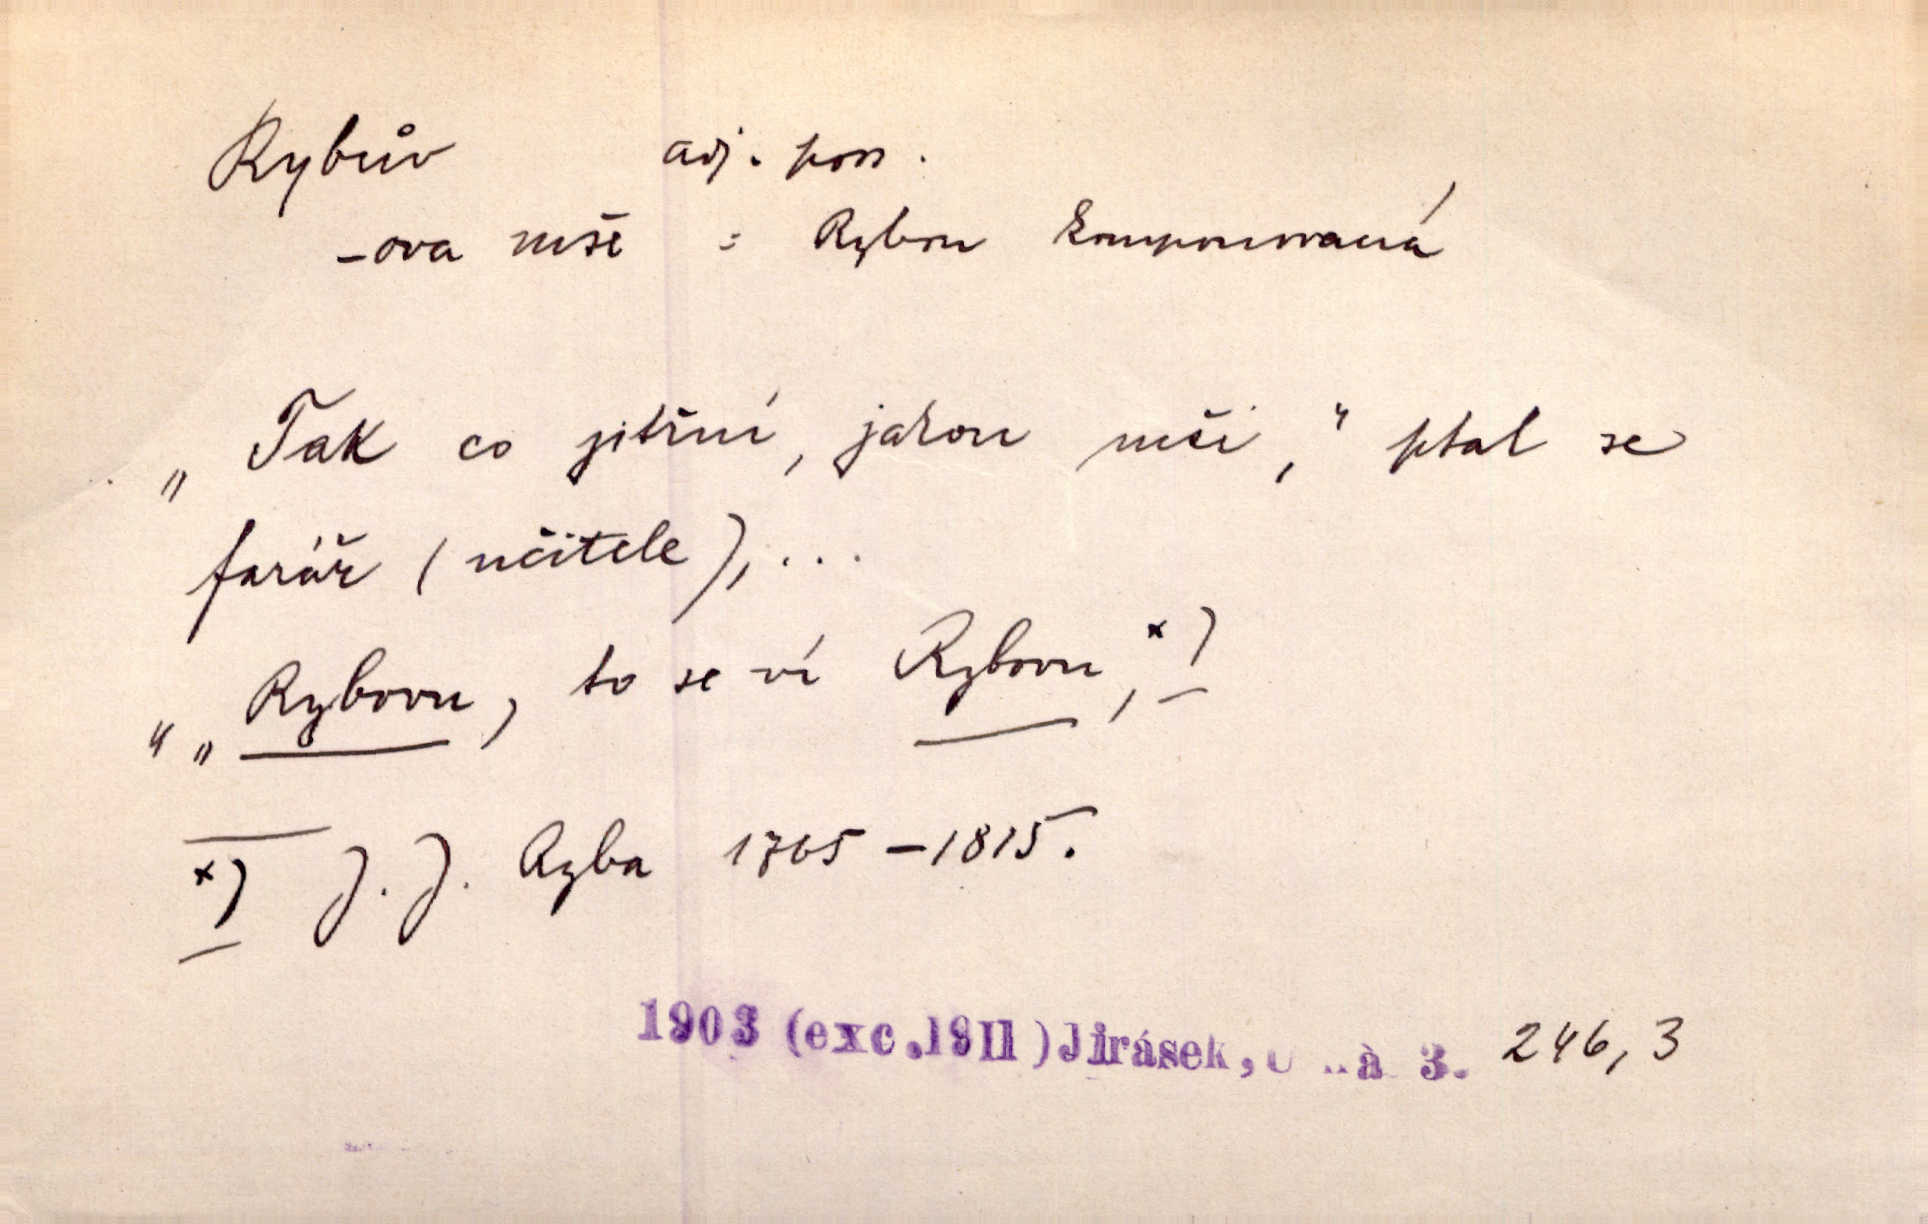 Rybův adj. poss.
-ova mše = Rybou komponovaná
„Tak co jitřní, jakou mši,“ ptal se
farář (učitele), ...
“ „Rybovu, to se ví Rybovu, x)
x) J. J. Ryba 1765 – 1815.
1903 (exc. 1911) Jirásek, à 3. 246, 3